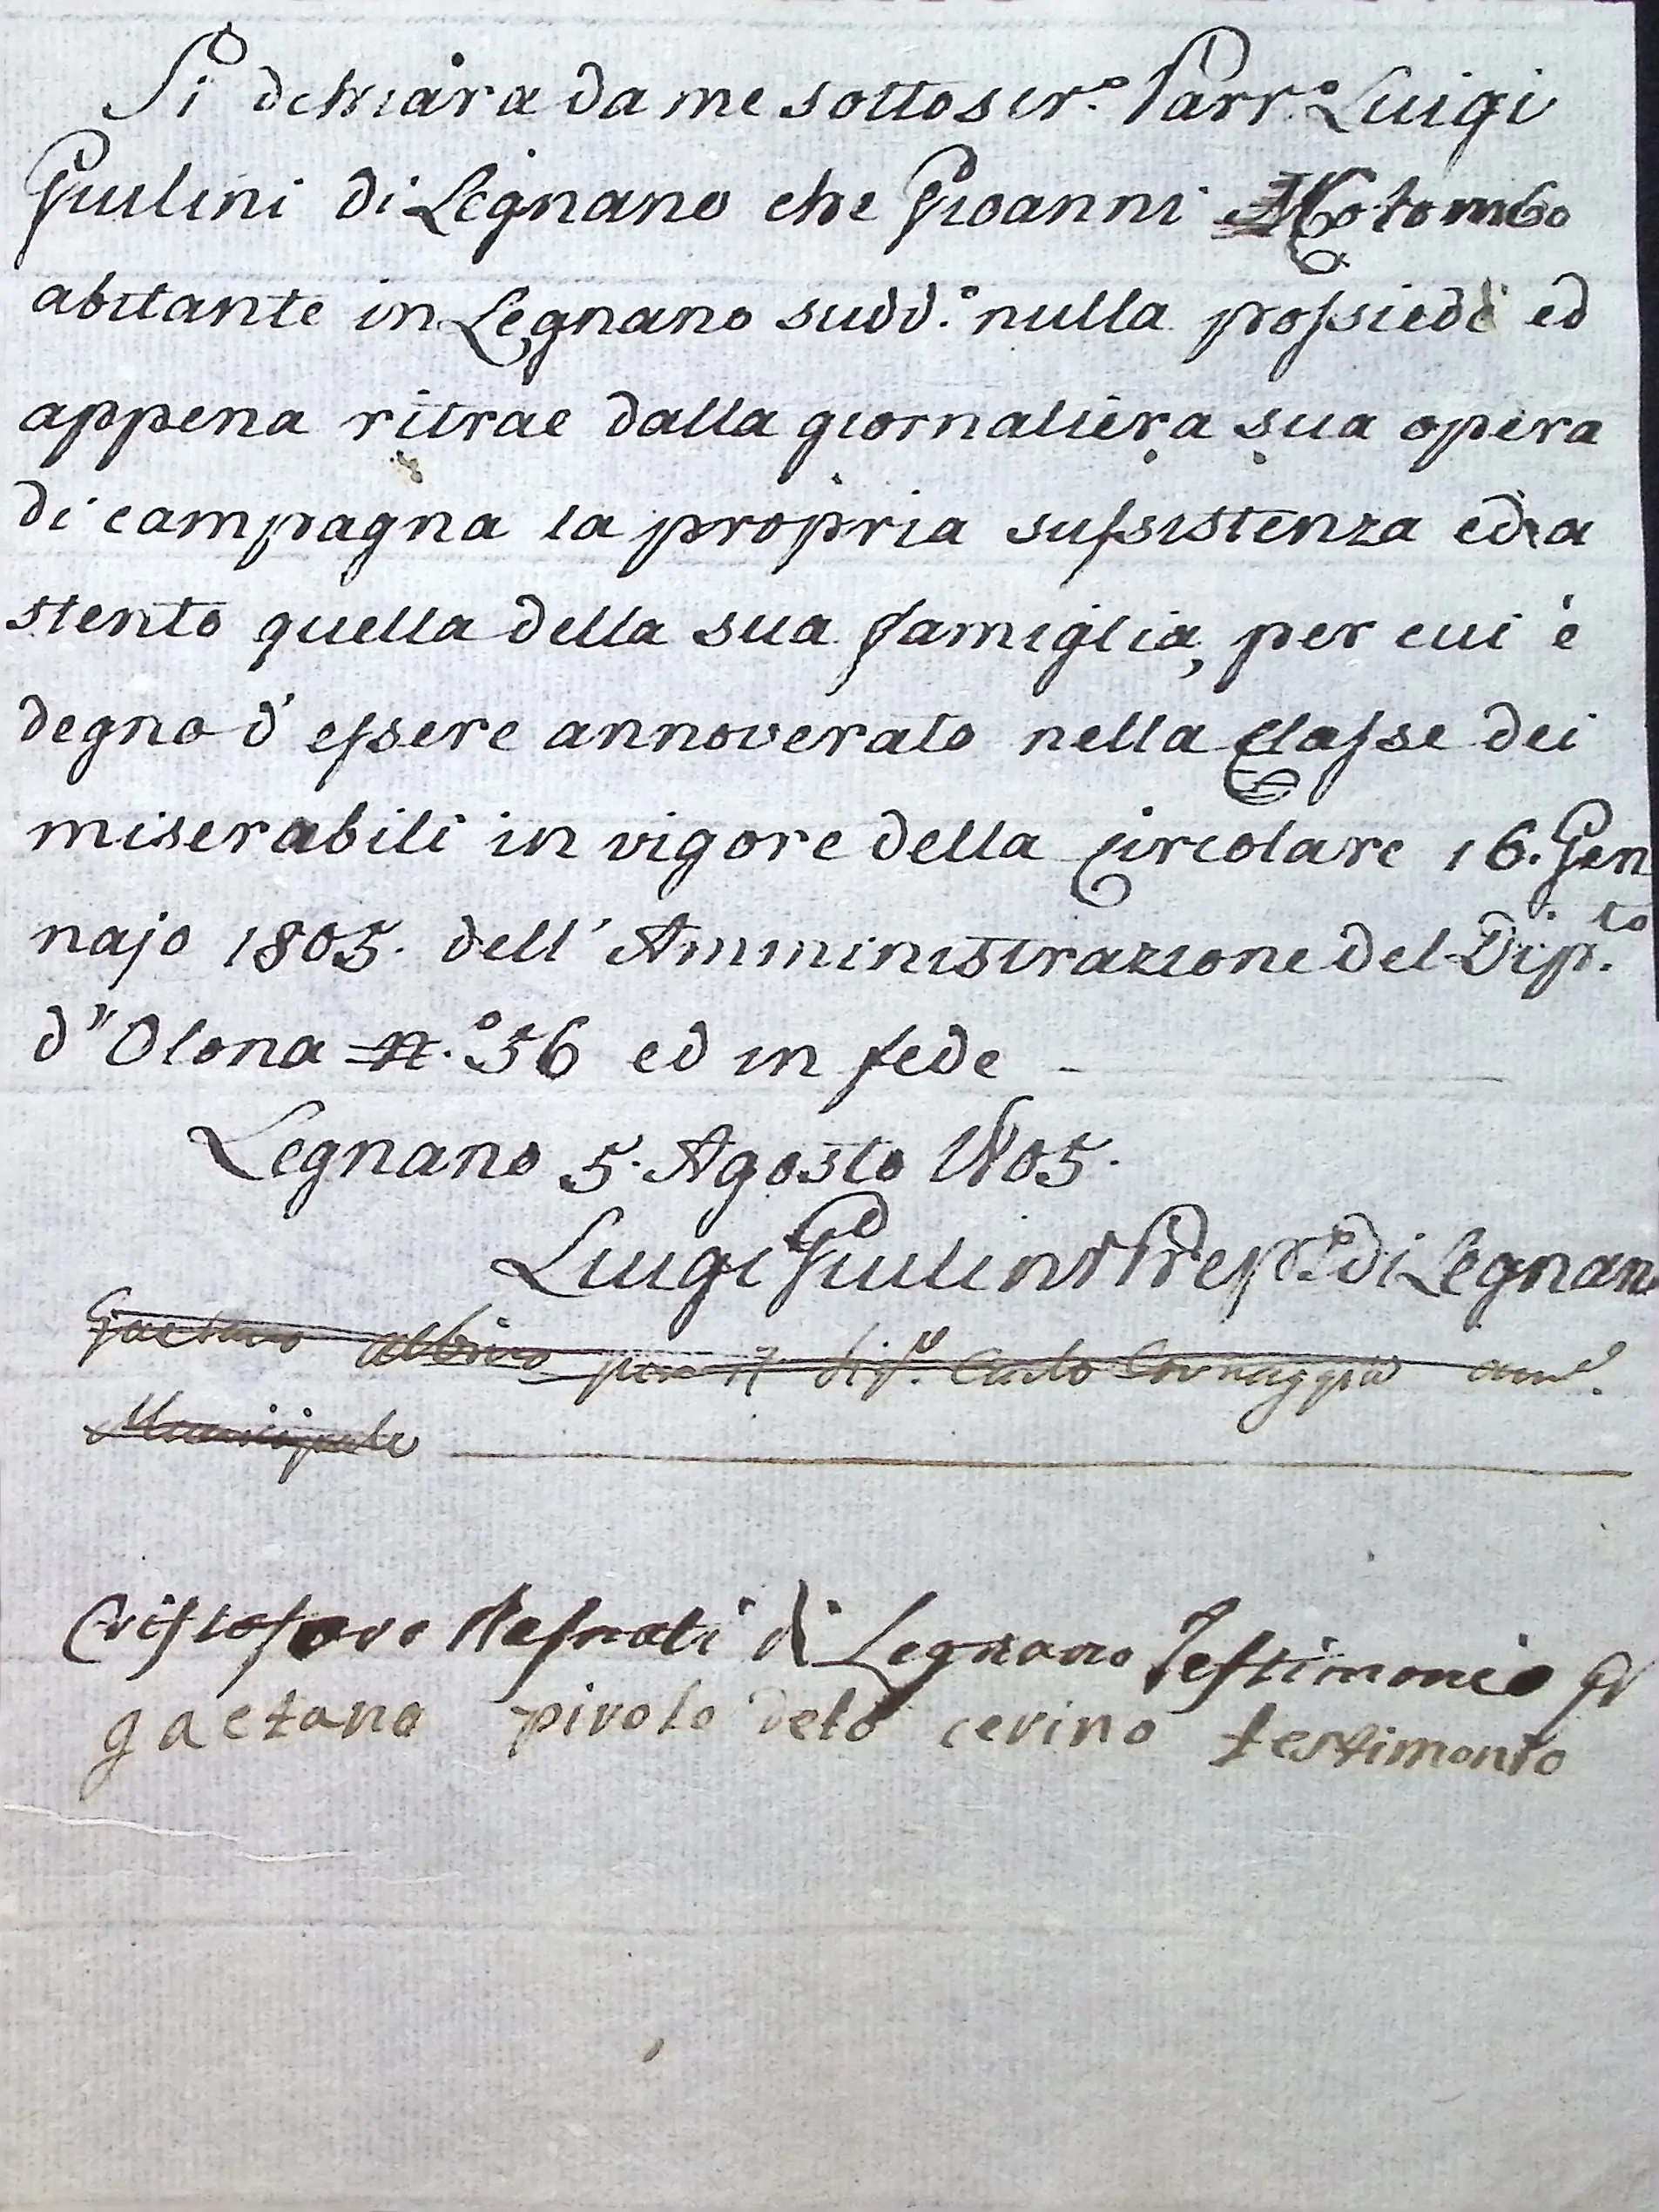 Si dichiara da me sottoscr.º Parr.º Luigi
Giulini di Legnano che Gioanni Colombo
abitante in Legnano sudd.º nulla possiede ed
appena ritrae dalla giornaliera sua opera
di campagna la propria sussistenza ed a
stento quella della sua famiglia, per cui è
degno d'essere annoverato nella Classe dei
miserabili in vigore della Circolare 16. Gen
najo 1805. dell'Amministrazione del Dip.to
d'Olona N.º 56 ed in fede
Legnano 5. Agosto 1805.
Luigi Giulini Prep.to di Legnano
Gaetano Albino per il Sig.r Carlo Cornaggia
Municipale
Cristoforo di Legnano Testimonio
gaetano pirolo deto cerino testimonio